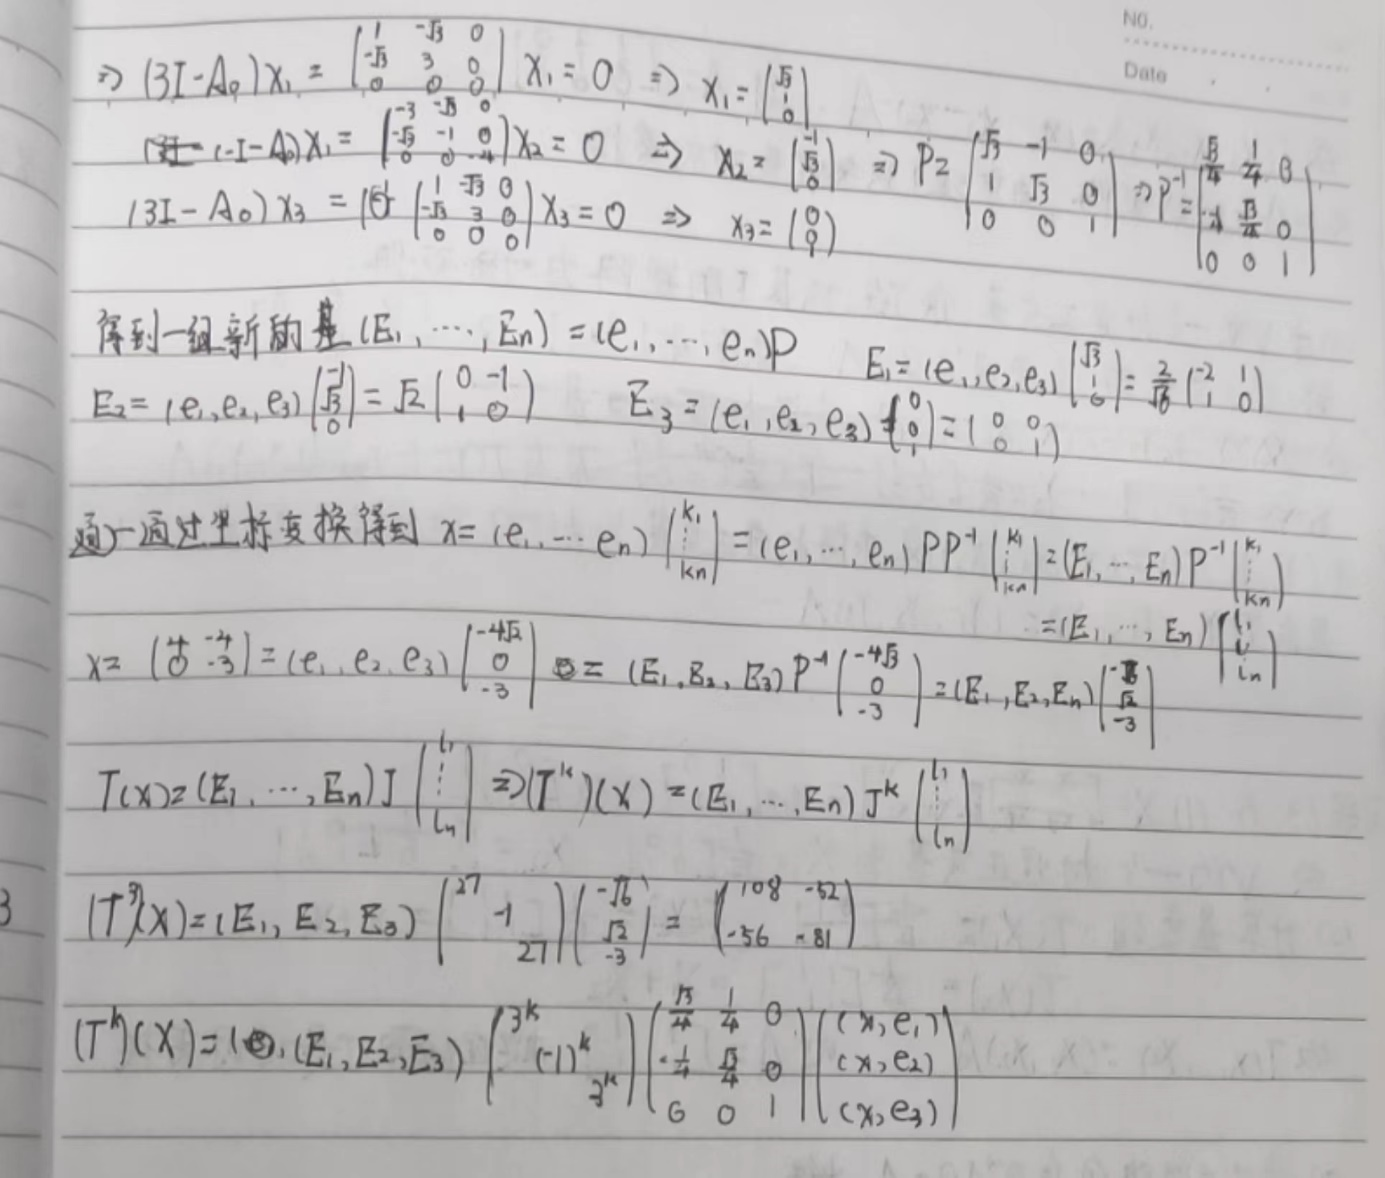 NO.
Date
⇒ (3I-A₀)x₁ = (1 -√3 0; -√3 3 0; 0 0 0) x₁ = 0 ⇒ x₁ = (√3; 1; 0)
(-I-A₀)x₁ = (-3 -√3 0; -√3 -1 0; 0 0 -4) x₂ = 0 ⇒ x₂ = (-1; √3; 0) ⇒ P = (√3 -1 0; 1 √3 0; 0 0 1) ⇒ P⁻¹ = (√3/4 1/4 0; -1/4 √3/4 0; 0 0 1)
(3I-A₀)x₃ = (1 -√3 0; -√3 3 0; 0 0 0) x₃ = 0 ⇒ x₃ = (0; 0; 1)
得到一组新的基(E₁, ⋯, Eₙ) = (e₁, ⋯, eₙ)P E₁ = (e₁, e₂, e₃)(√3; 1; 0) = 2/√6 (-2 1; 1 0)
E₂ = (e₁, e₂, e₃)(-1; √3; 0) = √2 (0 -1; 1 0) E₃ = (e₁, e₂, e₃)(0; 0; 1) = (0 0; 0 1)
通过坐标变换得到 x = (e₁, ⋯ eₙ)(k₁; ⋮; kₙ) = (e₁, ⋯, eₙ) P P⁻¹ (k₁; ⋮; kₙ) = (E₁, ⋯, Eₙ) P⁻¹ (k₁; ⋮; kₙ)
= (E₁, ⋯, Eₙ)(l₁; ⋮; lₙ)
x = (4 -4; 0 -3) = (e₁, e₂, e₃)(-4√2; 0; -3) = (E₁, E₂, E₃) P⁻¹ (-4√3; 0; -3) = (E₁, E₂, Eₙ)(-√6; √2; -3)
T(x) = (E₁, ⋯, Eₙ) J (l₁; ⋮; lₙ) ⇒ (Tᵏ)(x) = (E₁, ⋯, Eₙ) Jᵏ (l₁; ⋮; lₙ)
3
(T³)(x) = (E₁, E₂, E₃) (27 -1 27) (-√6; √2; -3) = (108 -52; -56 -81)
(Tᵏ)(x) = (E₁, E₂, E₃) (3ᵏ (-1)ᵏ 3ᵏ) (√3/4 1/4 0; -1/4 √3/4 0; 0 0 1) ((x, e₁); (x, e₂); (x, e₃))